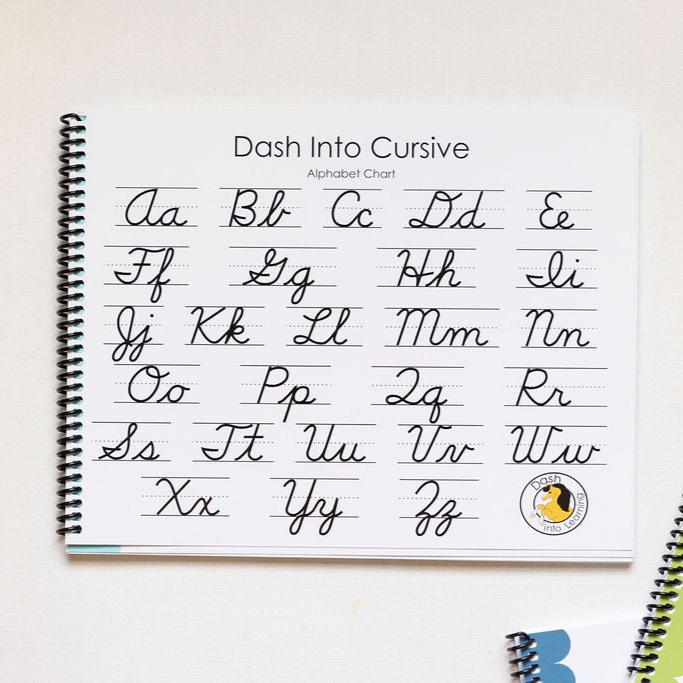 Dash Into Cursive
Alphabet Chart
Aa Bb Cc Dd Ee
Ff Gg Hh Ii
Jj Kk Ll Mm Nn
Oo Pp Qq Rr
Ss Tt Uu Vv Ww
Xx Yy Zz
Dash
into Learning